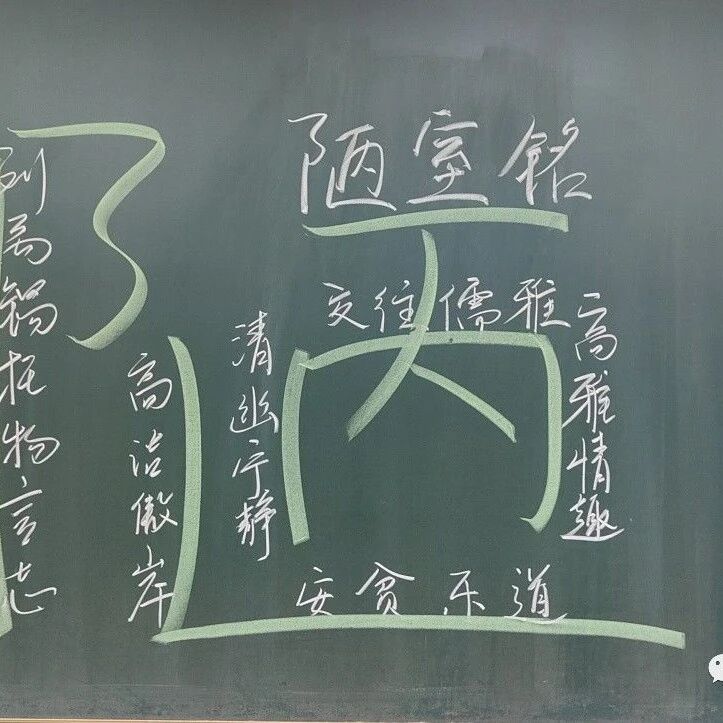 陋室铭
交往儒雅
高雅情趣
清幽宁静
高洁傲岸
刘禹锡托物言志
安贫乐道
陋